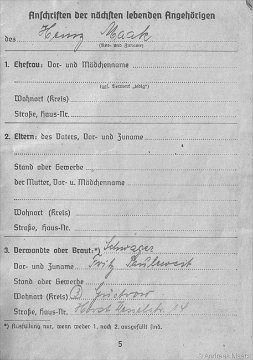 Anschriften der nächsten lebenden Angehörigen
des Heinz Maak
(Vor- und Zuname)
1. Ehefrau: Vor- und Mädchenname
(ggf. Vermerk „ledig“)
Wohnort (Kreis)
Straße, Haus-Nr.
2. Eltern: des Vaters, Vor- und Zuname
Stand oder Gewerbe
der Mutter, Vor- u. Mädchenname
Wohnort (Kreis)
Straße, Haus-Nr.
3. Verwandte oder Braut:*) Schwager
Vor- und Zuname Fritz
Stand oder Gewerbe
Wohnort (Kreis) Güstrow
Straße, Haus-Nr. Horst 14
*) Ausfüllung nur, wenn weder 1. noch 2. ausgefüllt sind.
5